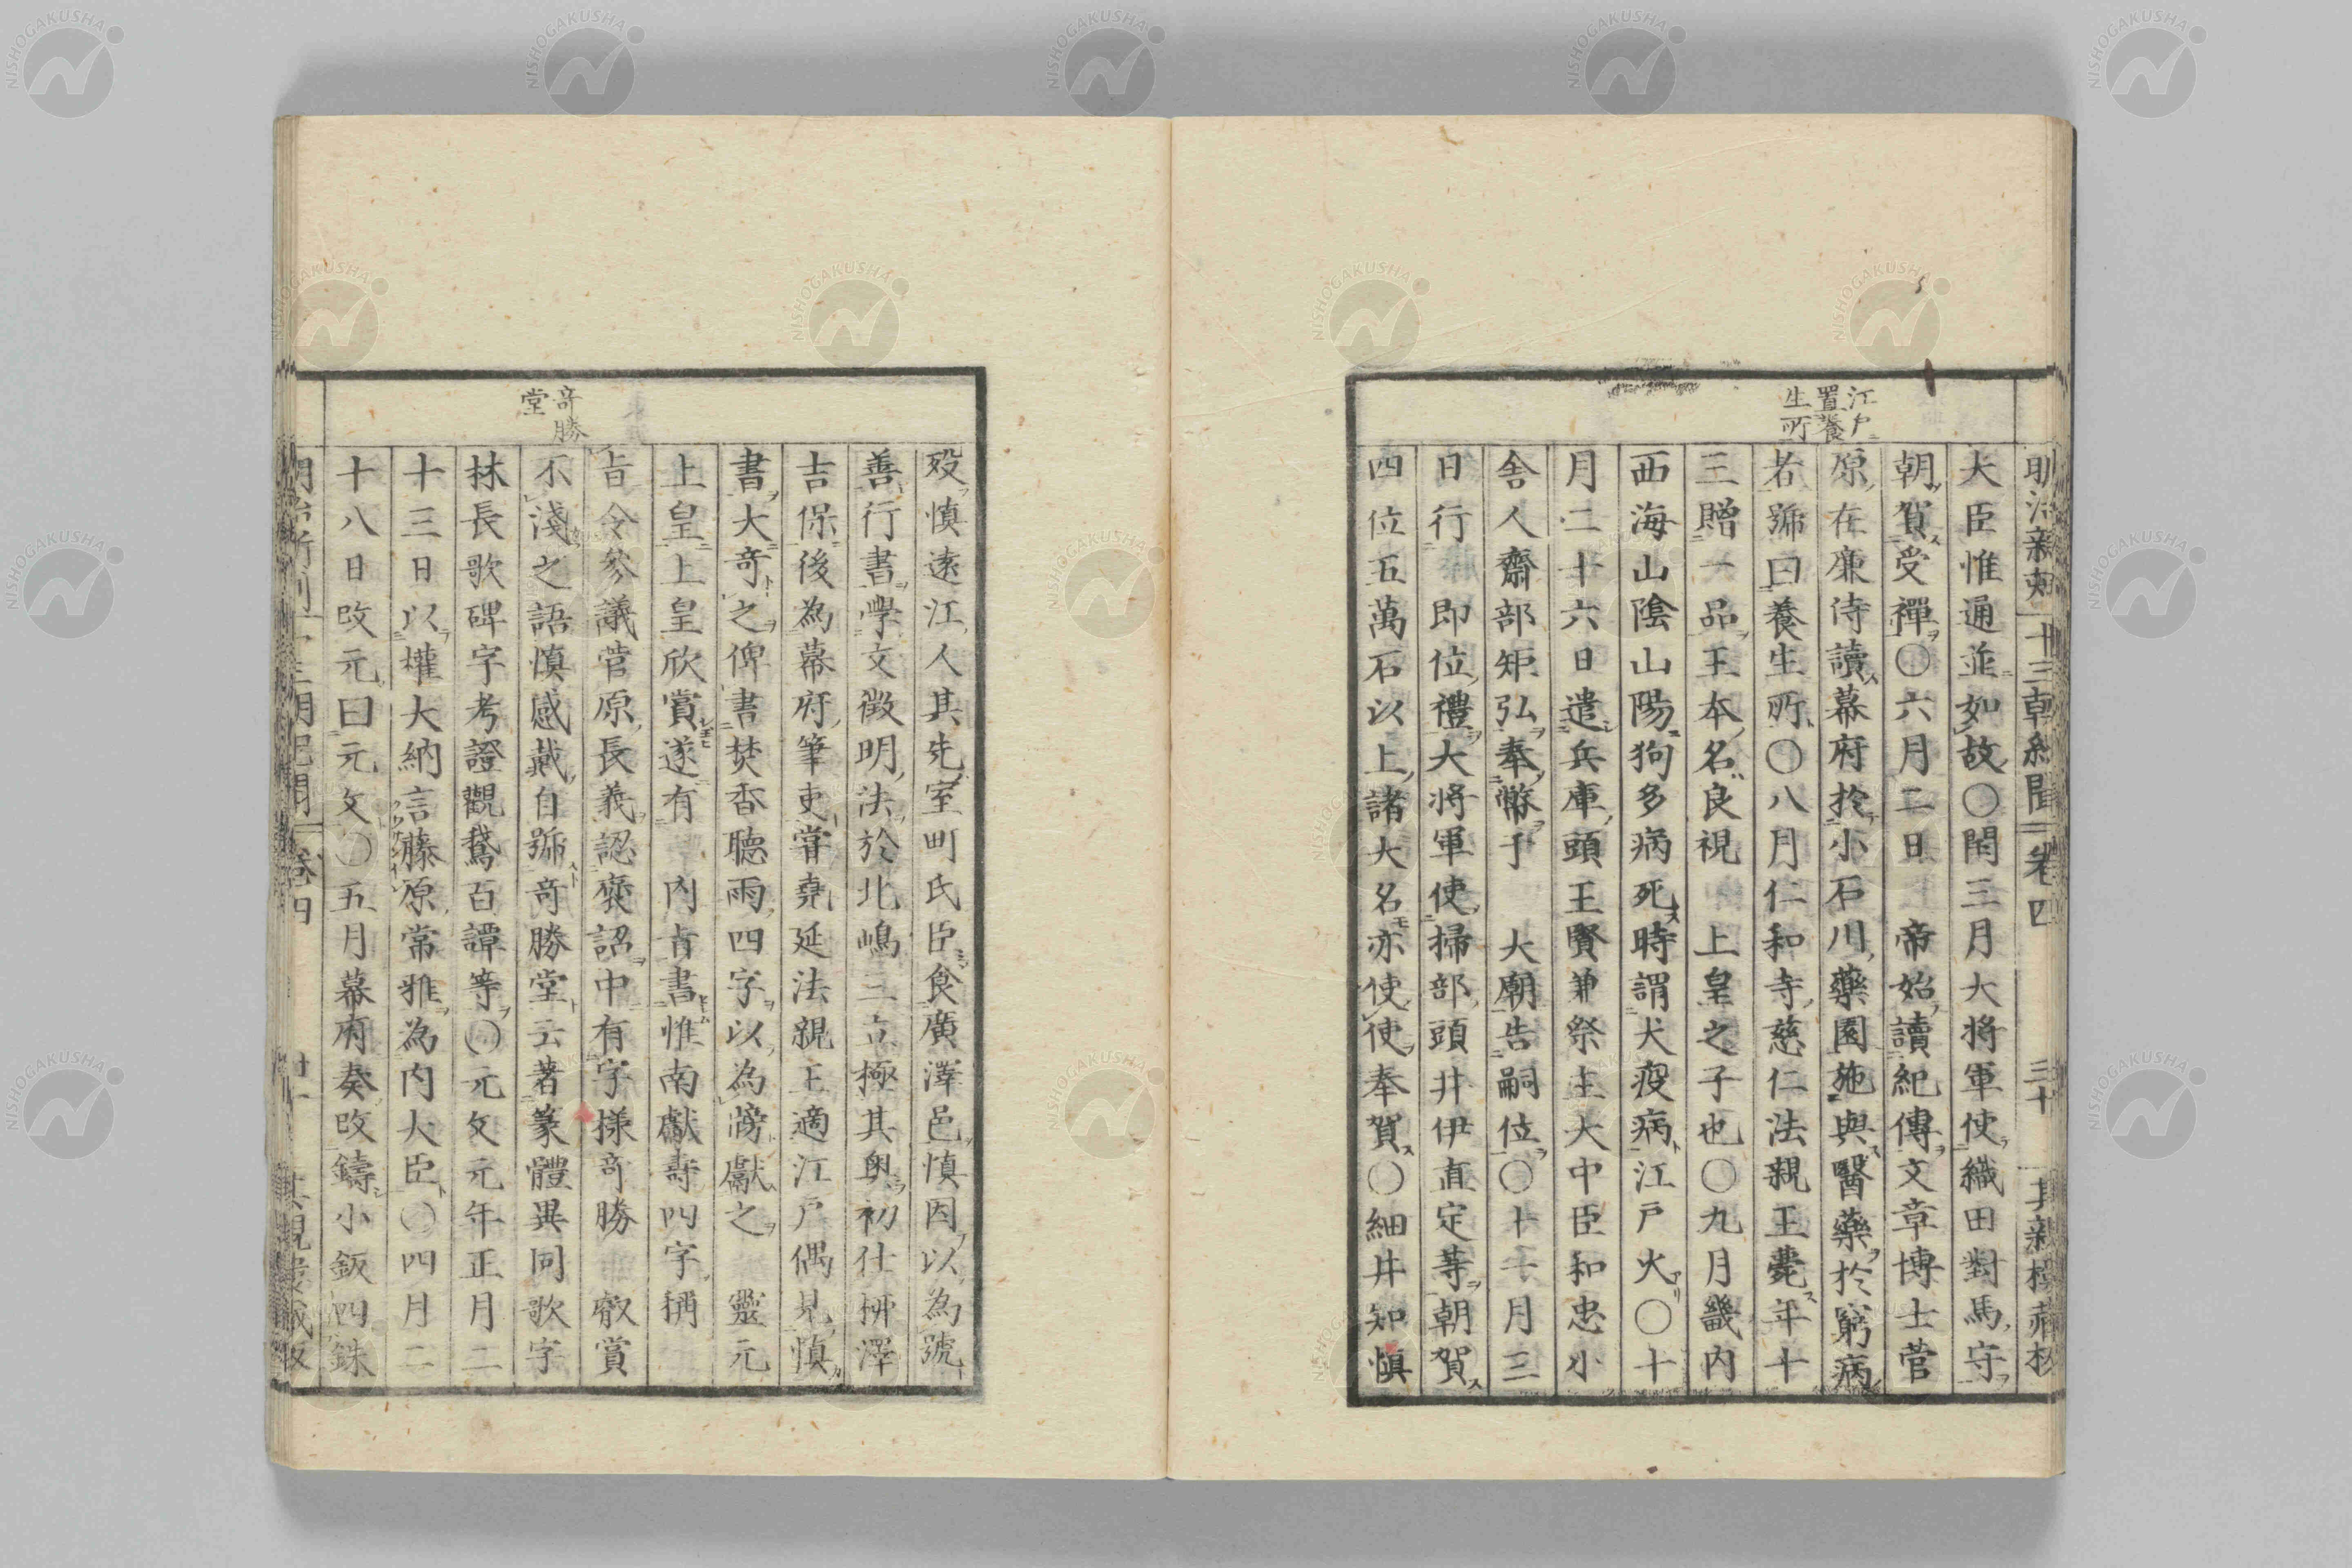 明治新刻 十三朝紀聞 卷四 三十
江戶
置養
生所
大臣惟通並如故〇閏三月大将軍使織田對馬守
朝賀受禪〇六月二日 帝始讀紀傳文章博士菅
原在廉侍讀幕府於小石川藥園施與醫藥於窮病
者號曰養生所〇八月仁和寺慈仁法親王薨年十
三贈一品王本名良視 上皇之子也〇九月畿内
西海山陰山陽狗多病死時謂犬疫病江戶火〇十
月二十六日遣兵庫頭王賢兼祭主大中臣和忠小
舍人齋部矩弘奉幣于 大廟告嗣位〇十一月三
日行即位禮大将軍使掃部頭井伊直定等朝賀
四位五萬石以上諸大名亦使使奉賀〇細井知愼
歿愼遠江人其先室町氏臣食廣澤邑愼因以為號
善行書學文徵明法於北嶋三立極其奥初仕栁澤
吉保後為幕府筆吏甞堯延法親王適江戶偶見愼
書大竒之俾書焚香聽雨四字以為牓獻之 靈元
上皇上皇欣賞遂有 内旨書惟南獻壽四字稱
旨令參議菅原長義認褒詔中有字様竒勝 叡賞
不淺之語愼感戴自號竒勝堂云著篆體異同歌字
林長歌碑字考證觀鵞百譚等〇元文元年正月二
十三日以權大納言藤原常雅為内大臣〇四月二
十八日改元曰元文〇五月幕府奏改鑄小鈑四銖
竒勝
堂
明治新刻 十三朝紀聞 卷四
NISHOGAKUSHA